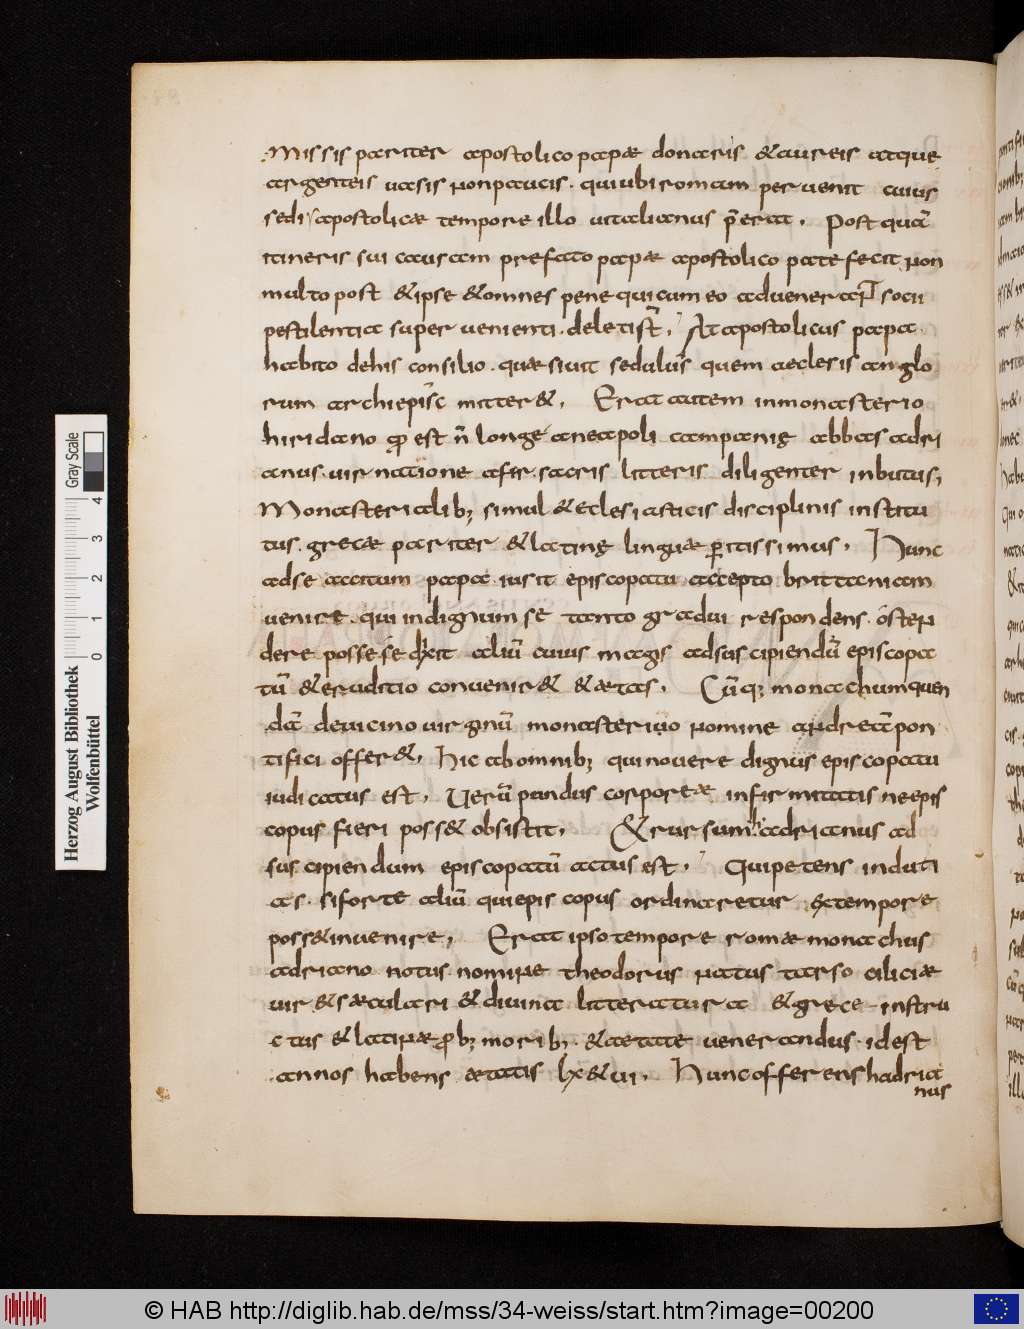 Missis pariter apostolico papæ donaris &aureis atque
argenteis uasis non paucis. qui ubi romam peruenit cuius
sedi apostolicæ tempore illo uitalianus p̄erat. Post quā
itineris sui causam prefato papæ apostolico patefecit non
multo post &ipse &omnes pene qui cum eo aduenerant socii
pestilentia superuenienti. deleti st̄. At apostolicus papa
habito dehis consilio. quæsiuit sedulus quem aeclesiis anglo
rum archiepisc̄ mitter&. Erat autem inmonasterio
hiridano qđ est n̄ longe aneapoli campanię abbas adri
anus. uir natione afir. sacris litteris diligenter inbutus,
Monasterialib; simul &ecclesiasticis disciplinis institu
tus. grecæ pariter &latinę linguæ peritissimus. Hunc
adse accitum papa iusit episcopatu accepto brittaniam
uenire. qui indignum se tanto gradui respondens. osten
dere posse se dixit aliū cuius magis adsuscipiendū episcopa
tū &eruditio conuenir& &ætas. Cūq; monachum quen
dā deuicino uirginū monasterio nomine andreā pon
tifici offer&. hic abomnib; qui nouere dignus episcopatu
iudicatus est. Uerū pondus corporeæ infirmitatis neepis
copus fieri poss& obsistit. &rursum adrianus ad
suscipiendum episcopatū actus est. Qui petens induti
as. si forte aliū qui episcopus ordinaretur extempore
poss&inuenire. Erat ipso tempore romæ monachus
adriano notus nomine theodorus natus tarso ciliciæ
uir &sæculari &diuina litteratura &grece instru
ctus &latinæ prob; morib; &aetate uenerandus. id est
annos habens ætatis lx&ui. Hunc offerens hadria
nus
Herzog August Bibliothek
Wolfenbüttel
Gray Scale
0 1 2 3 4
© HAB http://diglib.hab.de/mss/34-weiss/start.htm?image=00200